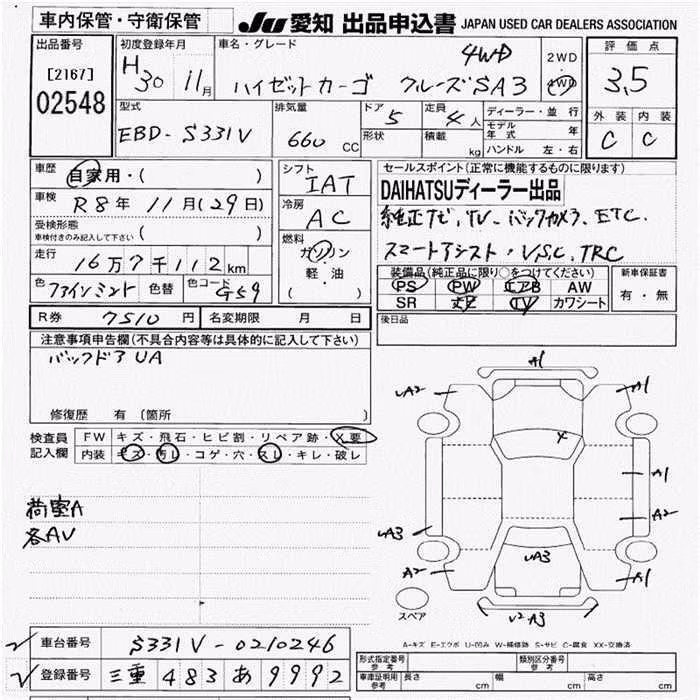 車内保管・守衛保管
JU 愛知 出品申込書 JAPAN USED CAR DEALERS ASSOCIATION
出品番号
[2167]
02548
初度登録年月
H30 11月
車名・グレード
4WD
ハイゼットカーゴ クルーズSA3
2WD
4WD
評価点
3,5
外装 内装
C C
型式
EBD-S331V
排気量
660 CC
ドア
5
形状
定員
4人
積載
kg
ディーラー・並行
モデル年式 年
ハンドル 左・右
車歴
自家用・( )
車検
R8年 11月(29日)
受検形態
車検付きのみ記入して下さい ( )
走行
16万7千112km
色 ファインミント 色替 色コード G59
シフト
IAT
冷房
AC
燃料
ガソリン
軽・油
( )
セールスポイント(正常に機能するものに限ります)
DAIHATSUディーラー出品
純正ナビ、TV、バックカメラ、ETC、
スマートアシスト・VSC、TRC
装備品(純正品に限り○をつけてください)
PS PW エアB AW
SR ナビ TV カワシート
新車保証書
有・無
後日品
R券 7510円 名変期限 月 日
注意事項申告欄(不具合内容等は具体的に記入して下さい)
バックドアUA
修復歴 有 [箇所 ]
検査員
記入欄
FW キズ・飛石・ヒビ割・リペア跡・X要
内装 キズ・汚レ・コゲ・穴・スレ・キレ・破レ
荷室A
各AV
A1
UA2
A1
A1
A2
UA3
UA3
A2
A1
U2-A3
スペア
A-キズ E-エクボ U-凹み W-補修跡 S-サビ C-腐食 XX-交換済
車台番号 S331V-0210246
登録番号 三重 483 あ 9992
形式指定番号
参考
類別区分番号
参考
車庫証明用
参考
長さ cm 幅 cm 高さ cm